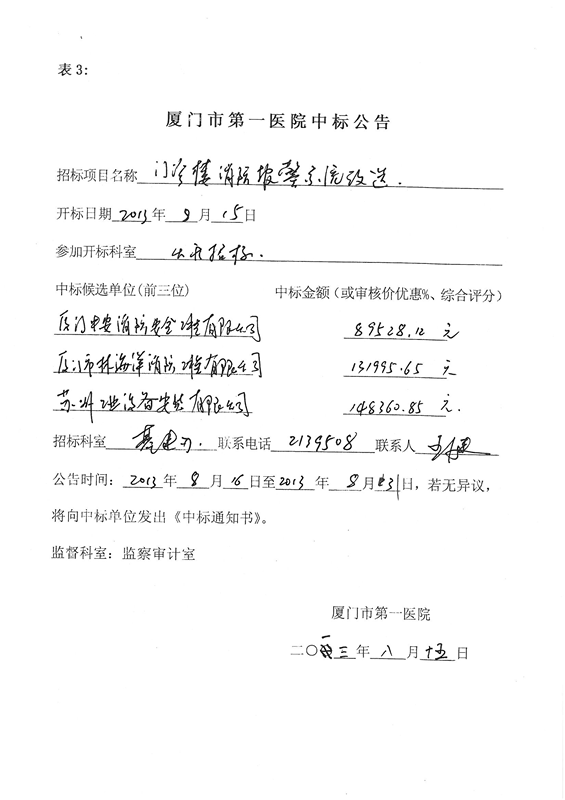 表3:
厦门市第一医院中标公告
招标项目名称 门诊楼消防报警系统改造.
开标日期 2013 年 8 月 15 日
参加开标科室 公开招标.
中标候选单位(前三位) 中标金额(或审核价优惠%、综合评分)
厦门安消防安全工程有限公司 89528.12 元
厦门市林海洋消防工程有限公司 131995.65 元
苏州工业设备安装有限公司 148360.85 元.
招标科室 基建办 联系电话 2139508 联系人
公告时间: 2013 年 8 月 16 日至 2013 年 8 月 31 日,若无异议,
将向中标单位发出《中标通知书》。
监督科室:监察审计室
厦门市第一医院
二〇一三 年 八 月 十五 日